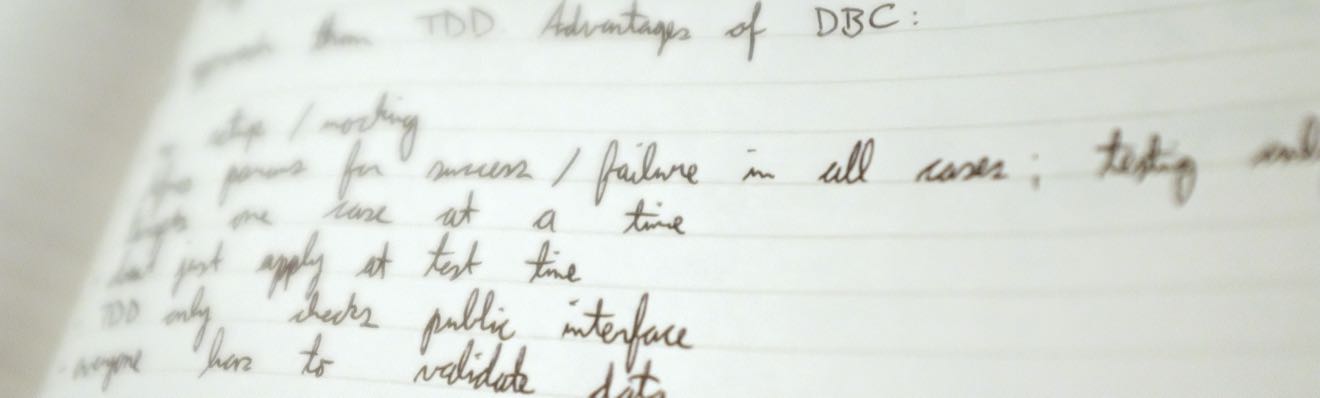 than TDD Advantages of DBC:
setup / mocking
params for success / failure in all cases; testing only
one case at a time
just apply at test time
TDD only checks public interface
- everyone has to validate data